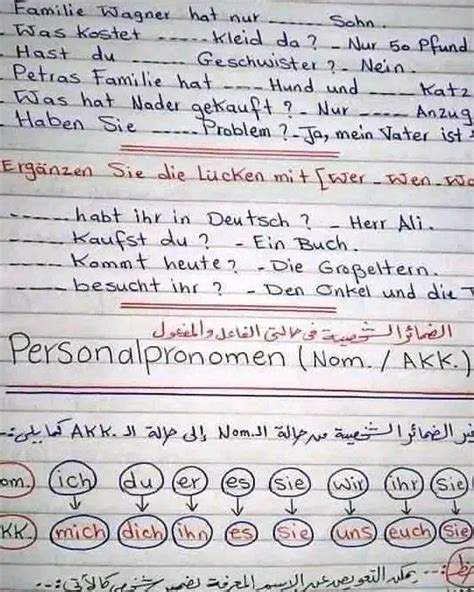 Familie Wagner hat nur ------ Sohn.
Was Kostet ----- Kleid da? - Nur 50 Pfund
Hast du ------ Geschwister? - Nein.
Petras Familie hat ---- Hund und ----- Katz
Was hat Nader gekauft? - Nur ----- Anzug
Haben Sie ----- Problem? - Ja, mein Vater ist
Ergänzen Sie die Lücken mit [Wer - Wen - Wa
------ habt ihr in Deutsch? - Herr Ali.
------ Kaufst du? - Ein Buch.
------ Kommt heute? - Die Großeltern.
------ besucht ihr? - Den Onkel und die T
الضمائر الشخصية في حالتي الفاعل والمفعول
Personalpronomen (Nom. / AKK.)
الضمائر الشخصية من حالة الـ Nom. إلى حالة الـ AKK. كما يلي:-
om. ich du er es sie wir ihr Sie
KK. mich dich ihn es sie uns euch Sie
يمكن التعويض عن الاسم المعرفة بضمير شخصي كالآتي:---